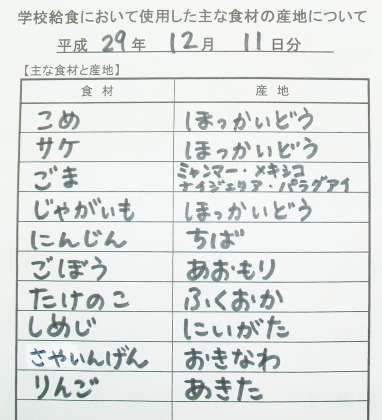 学校給食において使用した主な食材の産地について
平成 29 年 12 月 11 日分
【主な食材と産地】
食材 産地
こめ ほっかいどう
サケ ほっかいどう
ごま ミャンマー・メキシコ
ナイジェリア・パラグアイ
じゃがいも ほっかいどう
にんじん ちば
ごぼう あおもり
たけのこ ふくおか
しめじ にいがた
さやいんげん おきなわ
りんご あきた